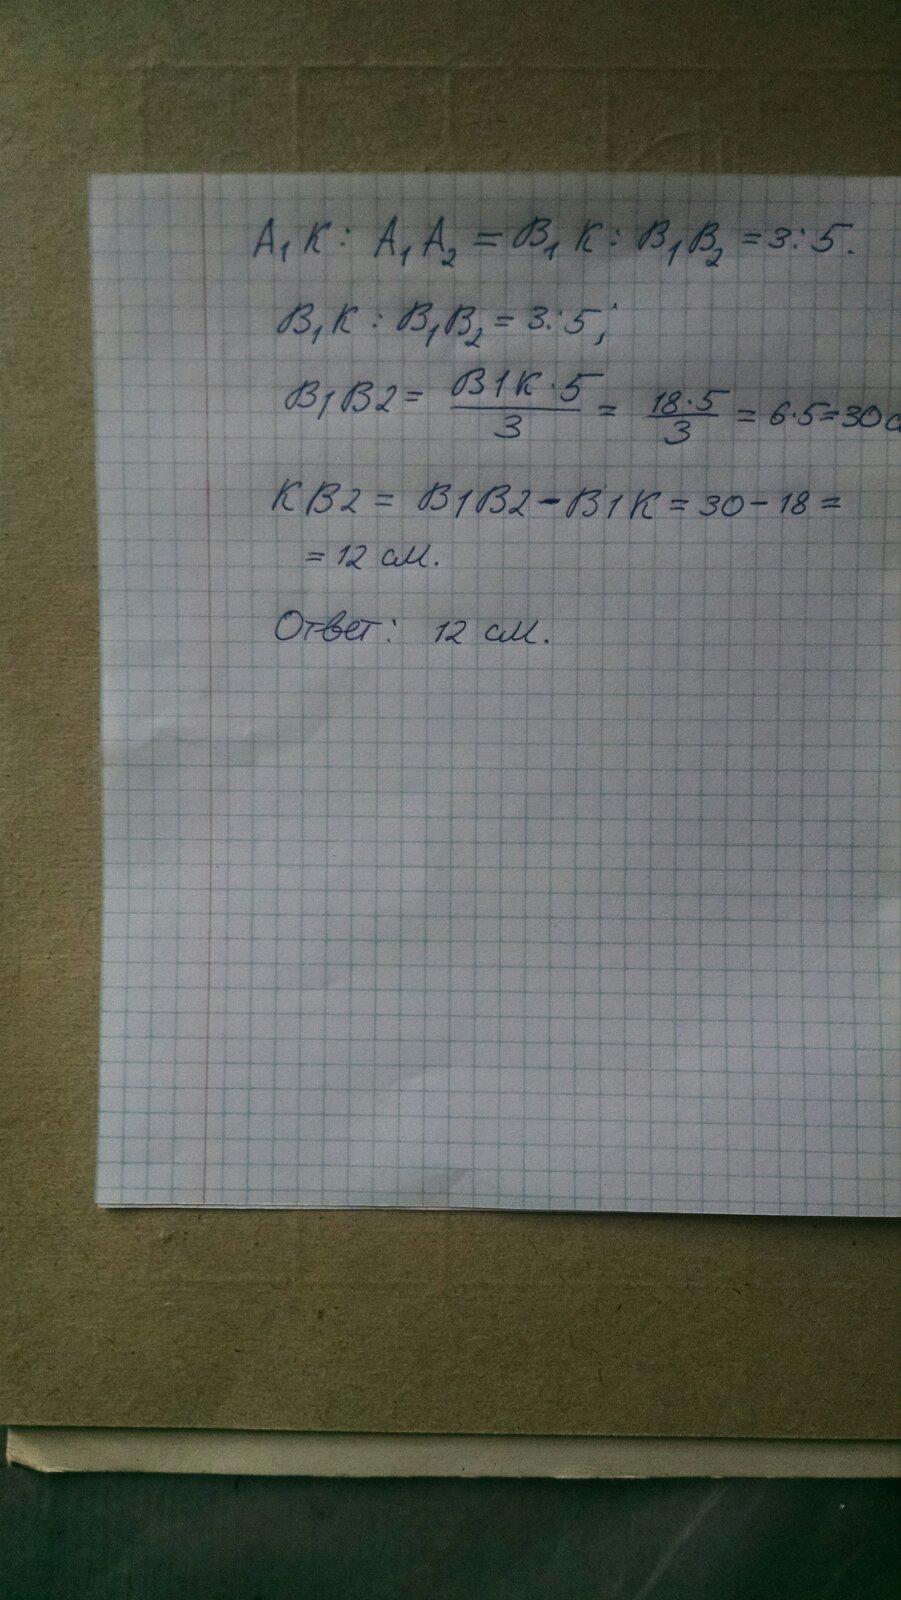 A₁K : A₁A₂ = B₁K : B₁B₂ = 3:5.
B₁K : B₁B₂ = 3:5;
B1B2 = B1K·5/3 = 18·5/3 = 6·5=30с
KB2 = B1B2-B1K = 30-18 =
= 12 см.
Ответ: 12 см.